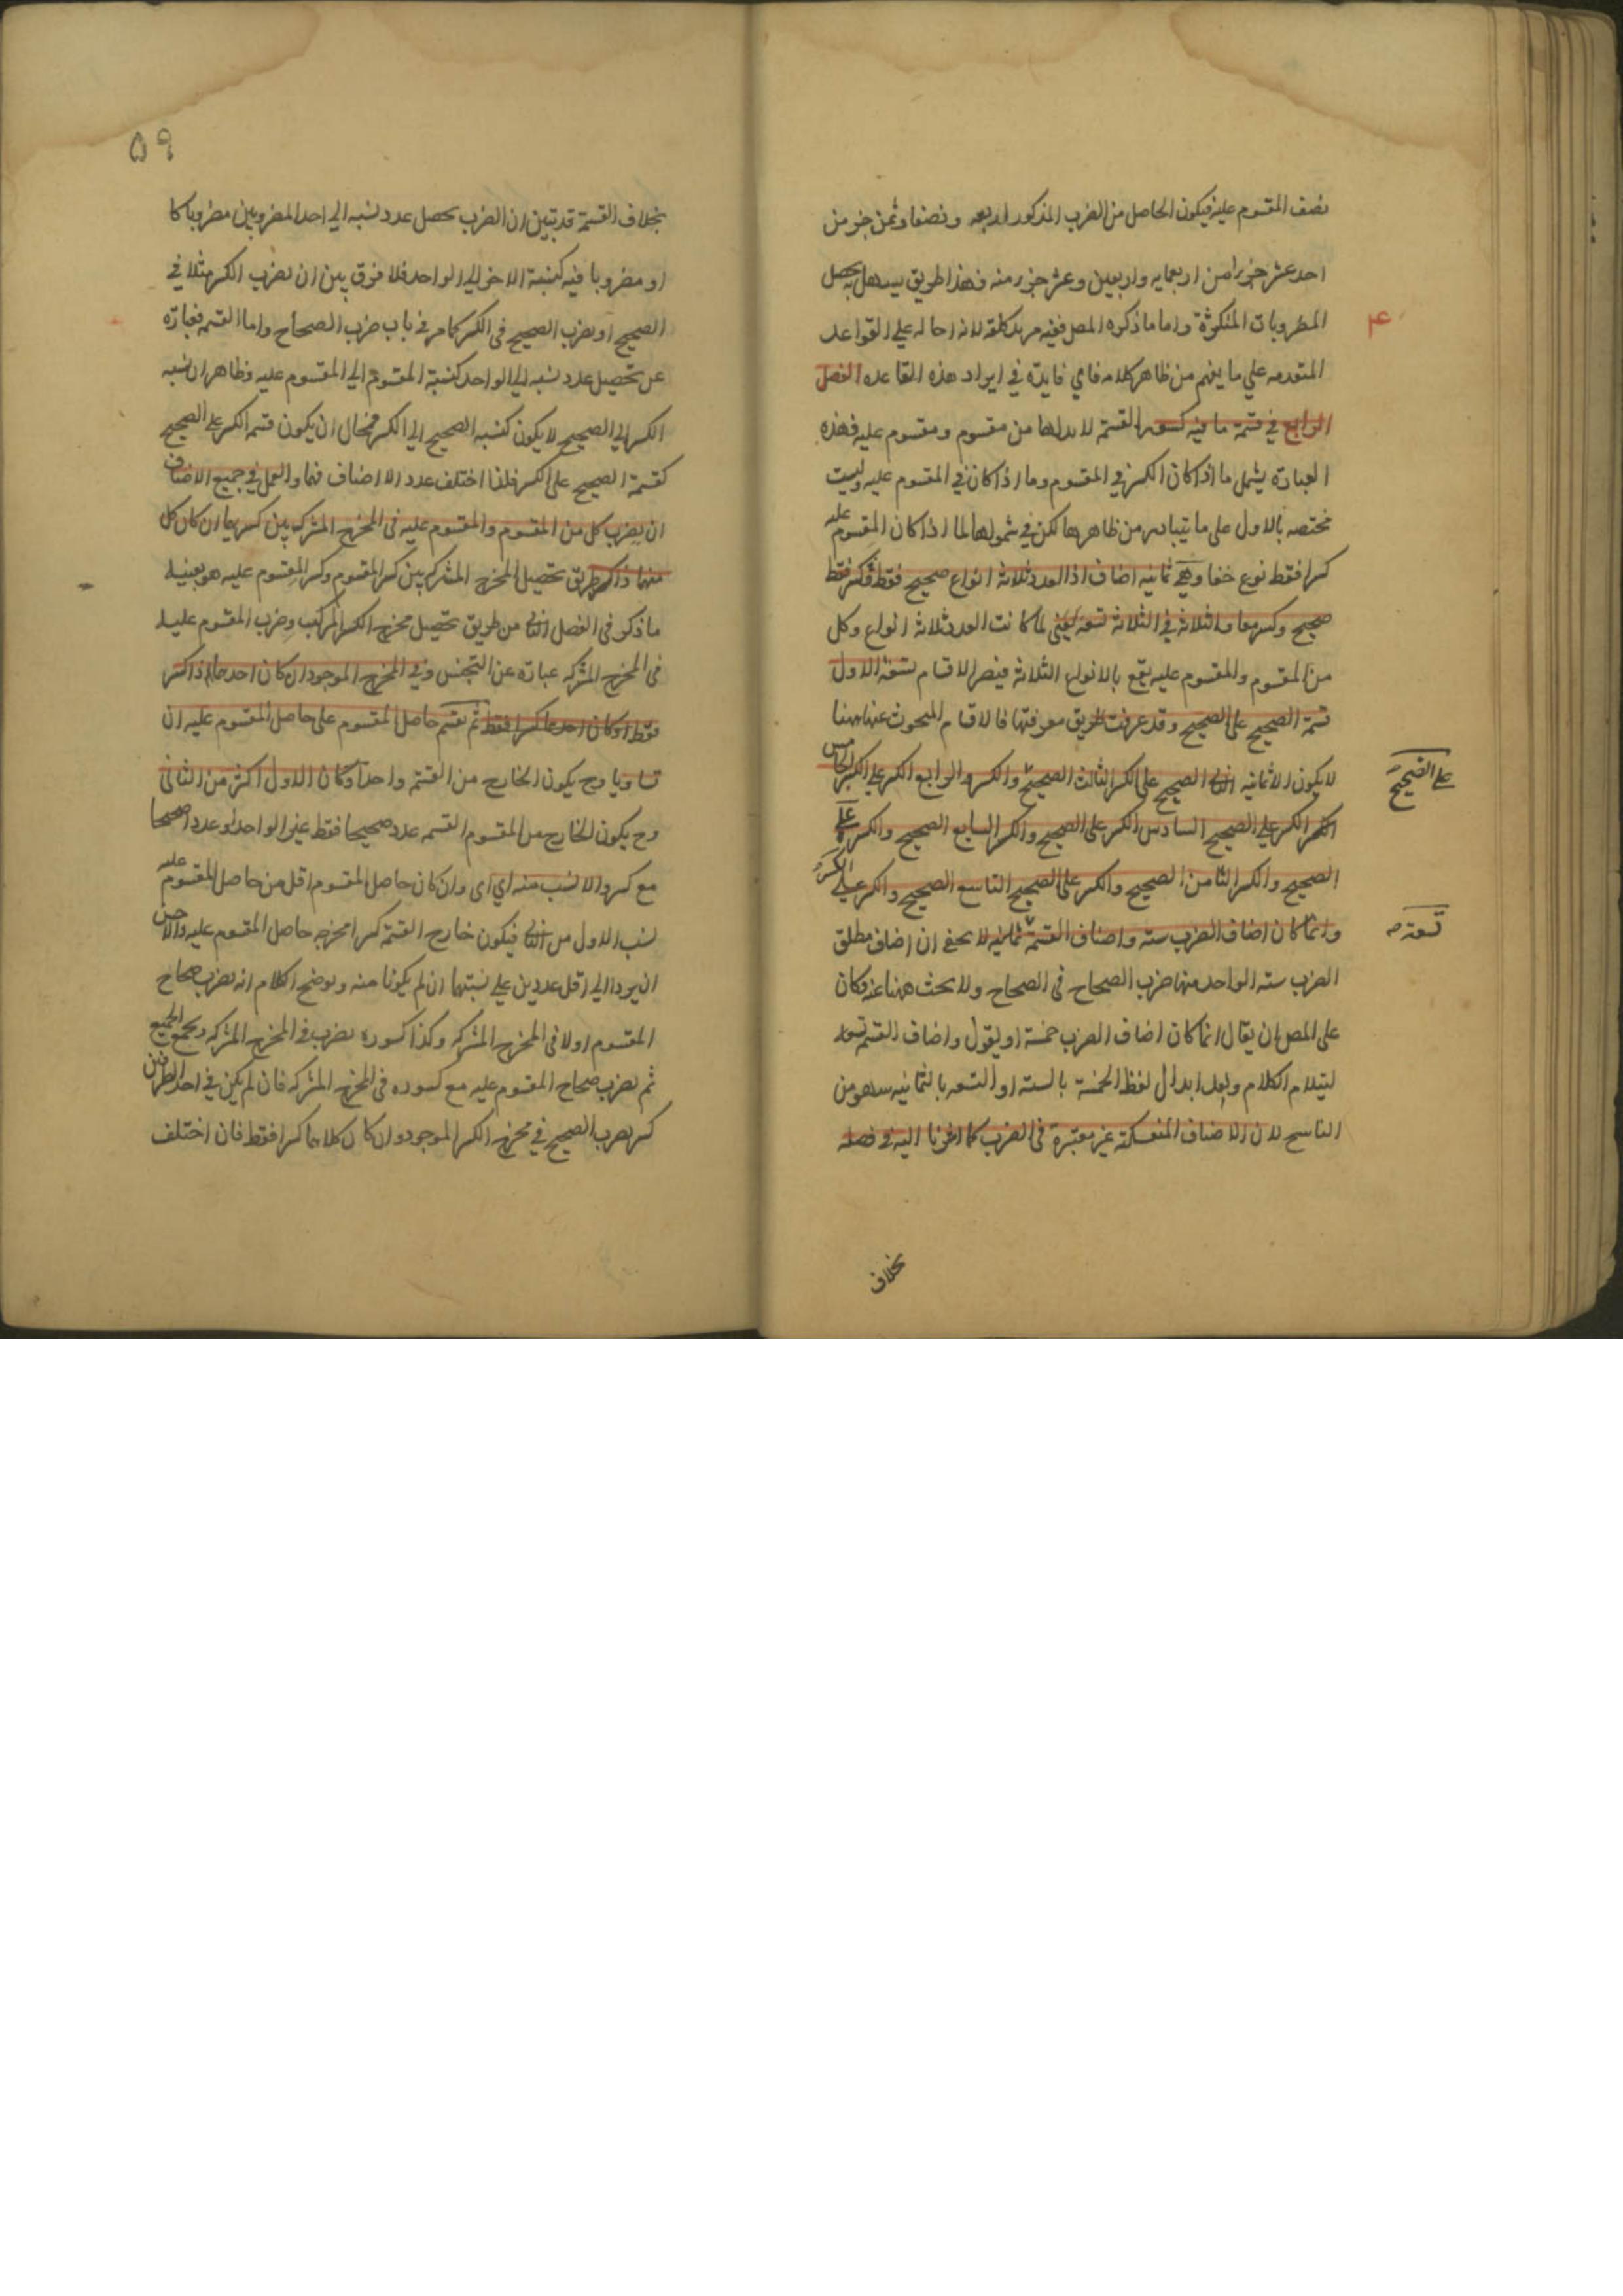 نصف المقسوم عليه فيكون الحاصل من الضرب المذكور اربعه ونصفا وثمن جزء من
احد عشر جزء امن اربعمايه واربعين وعشر جزء منه فهذا طريق يسهل به تحصل
المضروبات المنكوثة واما ما ذكره المص ففيه مزيد كلفة لانه احاله علي القواعد
۴
المتقدمه علي ما يفهم من ظاهر كلامه فاي فايدة في ايراد هذه القاعده الفصل
الرابع في قسمة ما فيه كسور القسمة لا بد لها من مقسوم ومقسوم عليه فهذه
العبارة يشمل ما اذا كان الكسر في المقسوم وما اذا كان في المقسوم عليه وليست
مختصه بالاول على ما يتبادر من ظاهرها لكن في شمولها لما اذا كان المقسوم عليه
كسرا فقط نوع خفا وهي ثمانيه اصناف اذ العدد ثلاثة انواع صحيح فقط وكسر فقط
صحيح وكسر معا والثلاثة في الثلاثة تسعه يعني لما كانت العدد ثلاثة انواع وكل
من المقسوم والمقسوم عليه يقع بالانواع الثلاثة فيصر الاقسام تسعة الاول
قسمة الصحيح على الصحيح وقد عرفت طريق معرفتها فالاقسام المبحوث عنها ههنا
لا يكون الا ثمانيه الثاني الصحيح على الكسر الثالث الصحيح والكسر الرابع الكسر علي الكسر الخامس
علي الصحيح
الكسر الكسر علي الصحيح السادس الكسر على الصحيح والكسر السابع الصحيح والكسر علي
الصحيح والكسر الثامن الصحيح والكسر على الصحيح التاسع الصحيح والكسر علي الكسر
وانما كان اصناف الضرب سته واصناف القسمة ثمانيه لا يخفي ان اصناف مطلق
تسعة صه
الضرب سته الواحد منها ضرب الصحاح في الصحاح ولا بحث ههنا عنه فكان
على المص ان يقال انما كان اصناف الضرب خمسة او يقول واصناف القسم تسعه
ليتلام الكلام ولعل ابدال لفظ الخمسة بالسته او التسعه بالثمانيه سهو من
الناسخ لان الاصناف المنعكسة غير معتبرة في الضرب كما اشرنا اليه في فصله
بخلاف
۵۹
بخلاف القسمة قد تبين ان الضرب تحصل عدد نسبه الي احد المضروبين مضروبا كا
او مضروبا فيه كنسبة الاخر الي الواحد فلا فرق بين ان يضرب الكسر مثلا في
الصحيح او يضرب الصحيح في الكسر كما مر في باب ضرب الصحاح واما القسمه فعبارة
عن تحصيل عدد نسبه الي الواحد كنسبة المقسوم الي المقسوم عليه وظاهر ان نسبه
الكسر الي الصحيح لا يكون كنسبه الصحيح الي الكسر فمحال ان يكون قسمه الكسر علي الصحيح
كقسمة الصحيح على الكسر فلذا اختلف عدد الاصناف فيها والعمل في جميع الاصناف
ان يضرب كل من المقسوم والمقسوم عليه في المخرج المشترك بين كسريهما ان كان كل
منهما ذاكسر طريق تحصيل المخرج المشترك بين كسر المقسوم وكسر المقسوم عليه هو بعينه
ما ذكر في الفصل الثاني من طريق تحصيل مخرج الكسر المركب وضرب المقسوم عليه
في المخرج المشترك عبارة عن التجنس وفي المخرج الموجود ان كان احدهما ذاكسر
فقط او كان احدهما كسرا فقط ثم تقسم حاصل المقسوم على حاصل المقسوم عليه ان
تساويا وح يكون الخارج من القسمة واحدا وكان الاول اكثر من الثاني
وح يكون الخارج من المقسوم القسمه عددا صحيحا فقط غير الواحد او عددا صحيحا
مع كسر والا نسب منه اي اي وان كان حاصل المقسوم اقل من حاصل المقسوم عليه
نسب الاول من الثاني فيكون خارج القسمة كسرا مخرجه حاصل المقسوم عليه والاحسن
ان يرد الي اقل عددين علي نسبتهما ان لم يكونا منه وتوضح الكلام انه يضرب صحاح
المقسوم اولا في المخرج المشترك وكذا كسوره يضرب في المخرج المشترك ويجمع الجميع
ثم يضرب صحاح المقسوم عليه مع كسوره في المخرج المشترك فان لم يكن في احد الطرفين
كسر يضرب الصحيح في مخرج الكسر الموجود وان كان كلاهما كسرا فقط فان اختلف